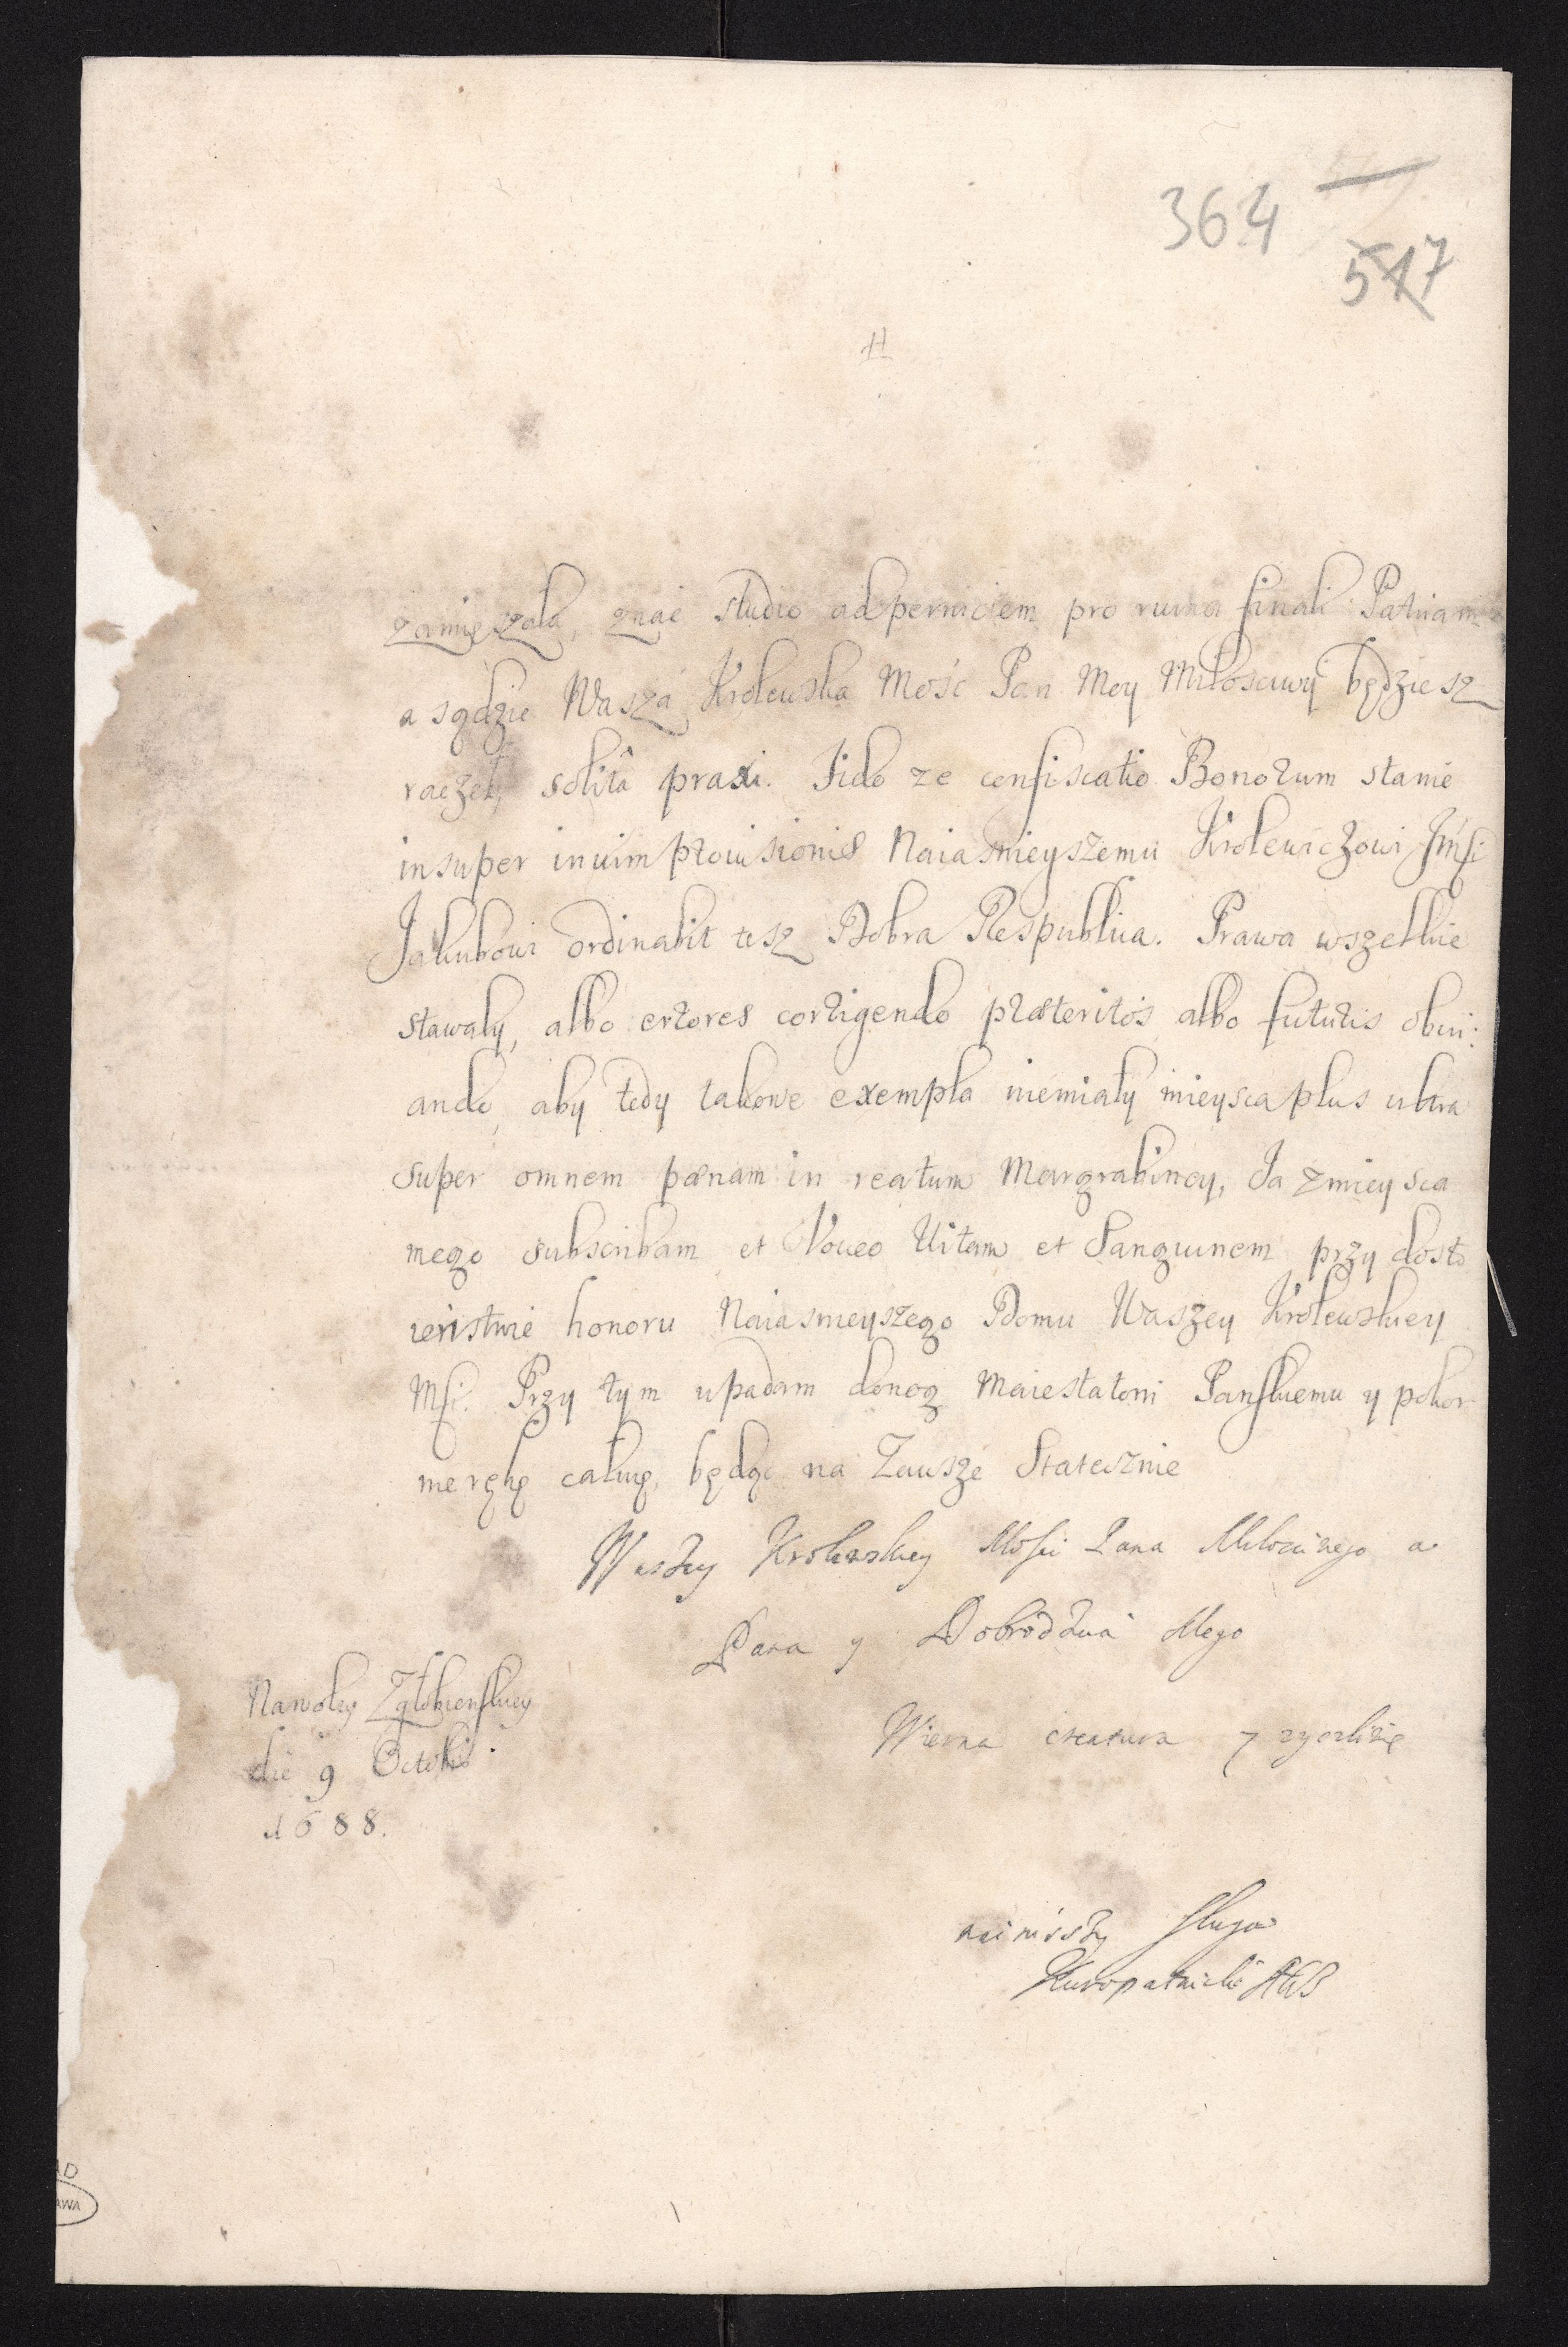 364
547
zamięszała, znac studio ad perniciem pro ruina finali Patriam
a sądzie Wasza Krolewska Mość Pan Moy Miłosciwy będziesz
raczeł, solitâ praxi. Fido ze confiscatio Bonorum stanie
insuper in vim prouisionis Naiasnieyszemu Krolewiczowi Jmsci
Jakubowi ordinabit tesz Dobra Respublica. Prawa wszelkie
stawały, albo errores corrigendo præteritos albo futuris obui:
ando, aby tedy takowe exempla niemiały mieysca plus ultra
super omnem pænam in reatum Margrabiney, Ja z mieysca
mego subscribam et Voueo Uitam et Sanguinem przy dosto
ienstwie honoru Naiasnieyszego Domu Waszey Krolewskiey
Msci. Przy tym upadam do nog Maiestatoni Panskiemu y pokor
nie rękę całuię, będąc na Zawsze Statecznie
Waszey Krolewskiey Mosci Pana Miłosciwego a
Pana y Dobrodzieia Mego
Nawoley Zgłobienskiey
die 9 Octobris
1688.
Wierna creatura y zyczliwie
nainisszy sługa
Kuropatnicki